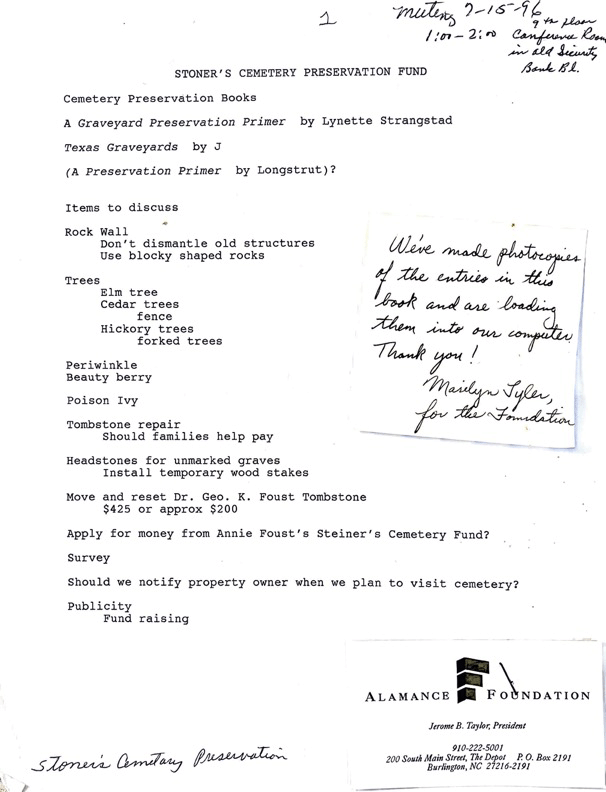 1
Meeting 7-15-96
9th floor
1:00-2:00 Conference Room
in old Security
Bank Bl.
STONER'S CEMETERY PRESERVATION FUND
Cemetery Preservation Books
A Graveyard Preservation Primer by Lynette Strangstad
Texas Graveyards by J
(A Preservation Primer by Longstrut)?
Items to discuss
Rock Wall
Don't dismantle old structures
Use blocky shaped rocks
Trees
Elm tree
Cedar trees
fence
Hickory trees
forked trees
Periwinkle
Beauty berry
Poison Ivy
Tombstone repair
Should families help pay
Headstones for unmarked graves
Install temporary wood stakes
Move and reset Dr. Geo. K. Foust Tombstone
$425 or approx $200
Apply for money from Annie Foust's Steiner's Cemetery Fund?
Survey
Should we notify property owner when we plan to visit cemetery?
Publicity
Fund raising
We've made photocopies
of the entries in this
book and are loading
them into our computer.
Thank you!
Marilyn Tyler,
for the Foundation
ALAMANCE FOUNDATION
Jerome B. Taylor, President
910-222-5001
200 South Main Street, The Depot P. O. Box 2191
Burlington, NC 27216-2191
Stoner's Cemetary Preservation